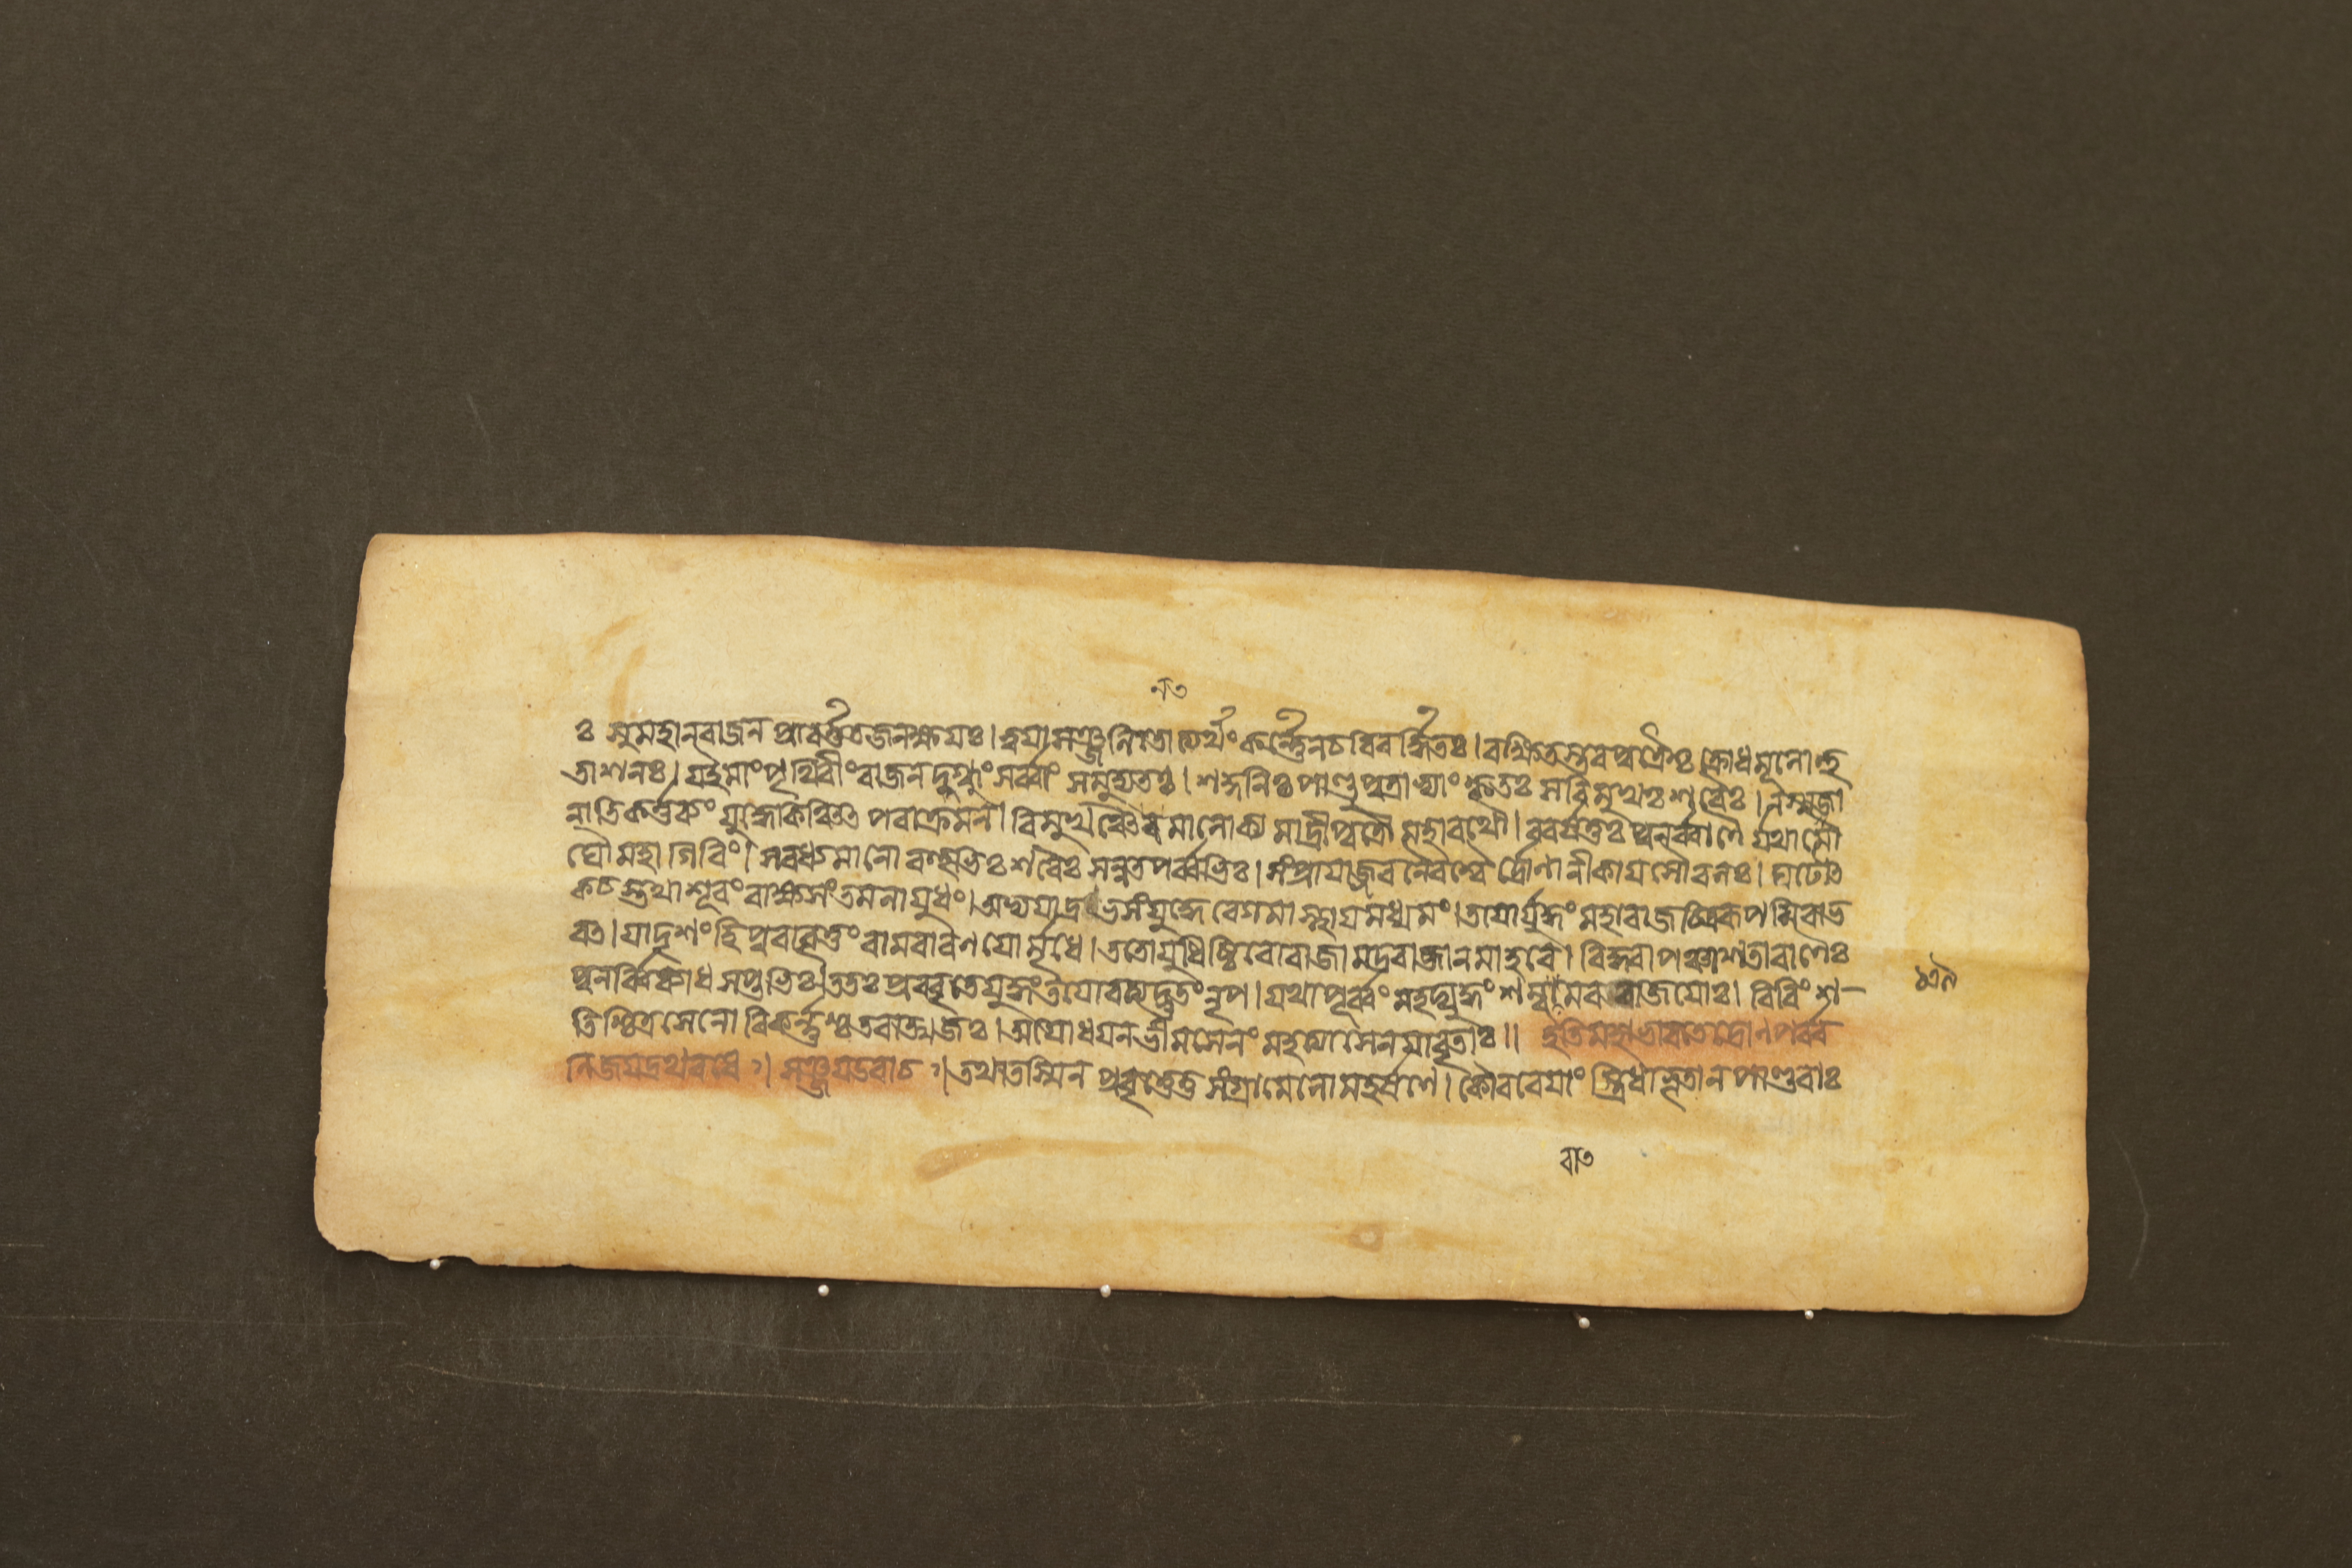 ন৩
ঃ সুমহান্রাজন প্রাবর্ত্ততজনক্ষয়ঃ। ত্বয়া সঞ্জনিতোত্যর্থং কর্ন্নেনচবিবর্দ্ধিতঃ। রক্ষিতস্তবপুত্রৈশ্চ ক্রোধমূলোহু
তাশনঃ। যইমাংপৃথিবীংরাজনদগ্ধুংসর্ব্বাং সমুদ্যতঃ। শকুনিঃ পাণ্ডুপুত্রাভ্যাং কৃতঃ সবিমুখঃ শরৈঃ। নস্মজা
নাতিকর্ত্তব্যং যুদ্ধেকিঞ্চিৎ পরাক্রমন। বিমুখঞ্চৈবমালোক্য মাদ্রীপুত্রৌ মহারথৌ। ববর্ষতুঃ পুনর্ব্বাণৈ র্যথামে
ঘৌ মহাগিরিং। সবধ্যমানো বহুভিঃ শরৈঃ সন্নতপর্ব্বভিঃ। সংপ্রায়াজ্জবনৈরশ্বৈ র্দ্রোণানীকায়সৌবলঃ। ঘটোৎ
কচস্তথাশূরং রাক্ষসংতমলায়ুধং। অভ্যয়াদ্রভসংযুদ্ধে বেগমাস্থায়মধ্যমং। তয়োর্যুদ্ধং মহারাজ চিত্ররূপমিবাভ
বৎ। যাদৃশংহিপুরাবৃত্তং রামরাবণয়োর্মৃধে। ততোযুধিষ্ঠিরোরাজা মদ্ররাজানমাহবে। বিদ্ধ্বাপঞ্চাশতাবাণৈঃ
পুনর্ব্বিব্যাধ সপ্তভিঃ। ততঃপ্রববৃতেযুদ্ধংতয়োরত্যদ্ভুতং নৃপ। যথাপূর্ব্বং মহদ্যুদ্ধং শম্বরামররাজয়োঃ। বিবিংশ–
তিশ্চিত্রসেনো বিকর্ন্নশ্চতবাত্মজঃ। অযোধয়নভীমসেনং মহত্যাসেনয়াবৃতাঃ॥ ইতিমহাভারতেদ্রোনপর্ব্ব
নিজয়দ্রথবধে। সঞ্জয়উবাচ। তথাতস্মিন প্রবৃত্তেতু সংগ্রামেলোমহর্ষণে। কৌরবেয়াং স্ত্রিধাভূতান পাণ্ডবাঃ
১৩৯
রা৩